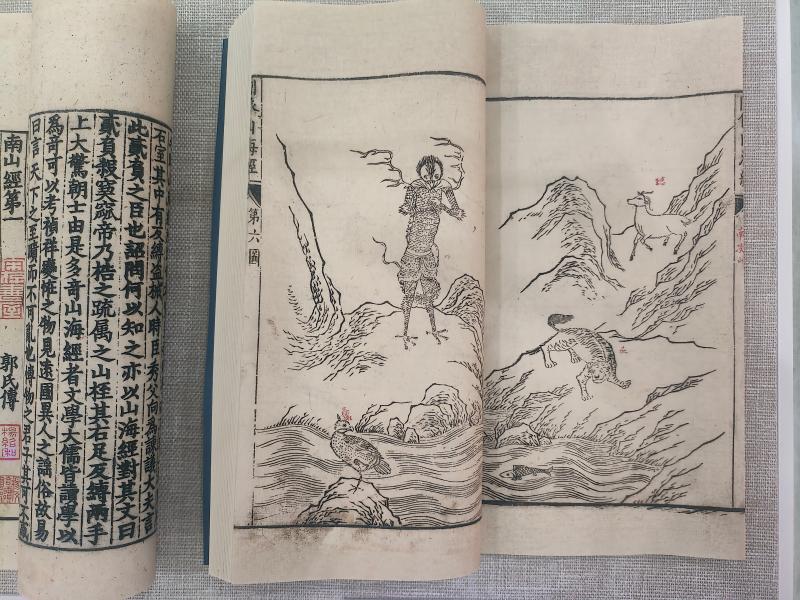 山海經
第六圖
石室其中有反縛盜械人時臣秀父向為諫議大夫言
此貳負之臣也詔問何以知之亦以山海經對其文曰
貳負殺窫窳帝乃梏之疏属之山桎其右足反縛兩手
上大驚朝士由是多奇山海經者文學大儒皆讀學以
為奇可以考禎祥變怪之物見遠國異人之謠俗故易
曰言天下之至賾而不可亂也博物之君子其可不惑
南山經第一
郭氏傳